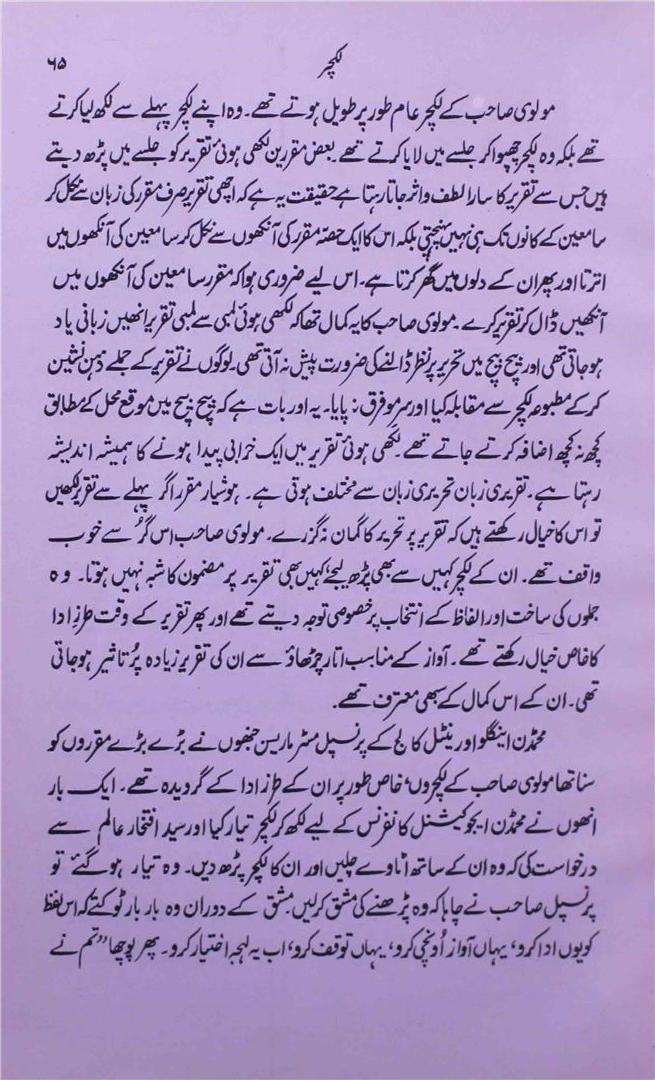 لکچر ۶۵
مولوی صاحب کے لکچر عام طور پر طویل ہوتے تھے۔ وہ اپنے لکچر پہلے سے لکھ لیا کرتے
تھے بلکہ وہ لکچر چھپوا کر جلسے میں لایا کرتے تھے۔ بعض مقررین لکھی ہوئی تقریر کو جلسے میں پڑھ دیتے
ہیں جس سے تقریر کا سارا لطف و اثر جاتا رہتا ہے حقیقت یہ ہے کہ اچھی تقریر صرف مقرر کی زبان سے نکل کر
سامعین کے کانوں تک ہی نہیں پہنچتی بلکہ اس کا ایک حصّہ مقرر کی آنکھوں سے نکل کر سامعین کی آنکھوں میں
اترتا اور پھر ان کے دلوں میں گھر کرتا ہے۔ اس لیے ضروری ہوا کہ مقرر سامعین کی آنکھوں میں
آنکھیں ڈال کر تقریر کرے۔ مولوی صاحب کا یہ کمال تھا کہ لکھی ہوئی لمبی سے لمبی تقریر انھیں زبانی یاد
ہو جاتی تھی اور بیچ بیچ میں تحریر پر نظر ڈالنے کی ضرورت پیش نہ آتی تھی۔ لوگوں نے تقریر کے جملے ذہن نشین
کر کے مطبوعہ لکچر سے مقابلہ کیا اور سرِ مو فرق نہ پایا۔ یہ اور بات ہے کہ بیچ بیچ میں موقع محل کے مطابق
کچھ نہ کچھ اضافہ کرتے جاتے تھے۔ لکھی ہوئی تقریر میں ایک خرابی پیدا ہونے کا ہمیشہ اندیشہ
رہتا ہے۔ تقریری زبان تحریری زبان سے مختلف ہوتی ہے۔ ہوشیار مقرر اگر پہلے سے تقریر لکھیں
تو اس کا خیال رکھتے ہیں کہ تقریر پر تحریر کا گمان نہ گزرے۔ مولوی صاحب اس گُر سے خوب
واقف تھے۔ ان کے لکچر کہیں سے بھی پڑھ لیجیے، کہیں بھی تقریر پر مضمون کا شبہ نہیں ہوتا۔ وہ
جملوں کی ساخت اور الفاظ کے انتخاب پر خصوصی توجہ دیتے تھے اور پھر تقریر کے وقت طرزِ ادا
کا خاص خیال رکھتے تھے۔ آواز کے مناسب اتار چڑھاؤ سے ان کی تقریر زیادہ پُر تاثیر ہو جاتی
تھی۔ ان کے اس کمال کے سبھی معترف تھے۔
محمڈن اینگلو اورینٹل کالج کے پرنسپل مسٹر ماریسن جنھوں نے بڑے بڑے مقرروں کو
سنا تھا مولوی صاحب کے لکچروں، خاص طور پر ان کے طرزِ ادا کے گرویدہ تھے۔ ایک بار
انھوں نے محمڈن ایجوکیشنل کانفرنس کے لیے لکھ کر لکچر تیار کیا اور سید افتخار عالم سے
درخواست کی کہ وہ ان کے ساتھ اٹاوے چلیں اور ان کا لکچر پڑھ دیں۔ وہ تیار ہو گئے تو
پرنسپل صاحب نے چاہا کہ وہ پڑھنے کی مشق کر لیں۔ مشق کے دوران وہ بار بار ٹوکتے کہ اس لفظ
کو یوں ادا کرو، یہاں آواز اُونچی کرو، یہاں توقف کرو، اب یہ لہجہ اختیار کرو۔ پھر پوچھا "تم نے